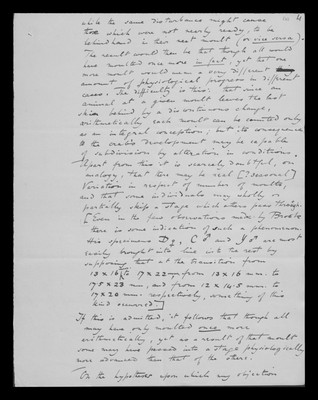 while the same disturbance might cause
those which were not nearly ready, to be
behindhand in their next moult (or vice versa).
The result would then be that though all would
have moulted once more in fact, yet that one
more moult would mean a very different
amount of physiological progress in different
cases. The difficulty is this; that since an
animal at a given moult leaves the last
skin behind by a discontinuous change,
arithmetically each moult can be counted only
as an integral exception, but its consequence
to the crab's development may be capable
of subdivision by alteration in conditions.
Apart from this it is scarcely doubtful, on
analogy, that there may be real [? seasonal]
Variation in respect of number of moults,
and that some individuals may wholly or
partially skip a stage which others pass through.
[Even in the few observations made by Brooks
there is some indication of such a phenomenon.
His specimens D♀, C♂ and J♂ are most
easily brought into line with the rest by
supposing that at the transition from
13 x 16 to 17 x 22 mm, from 13 x 16 mm. to
17.5 x 23 mm, and from 12 x 14.5 mm. to
17 x 20 mm. respectively, something of this
kind occurred.]
If this is admitted, it follows that though all
may have only moulted once more
arithmetically, yet as a result of that moult
some may have passed into a stage physiologically
more advanced than that of the others.
On the hypothesis upon which my objection